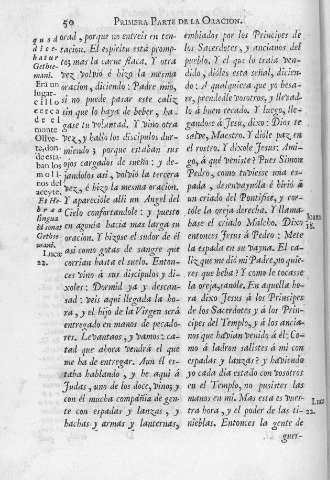 50 PRIMERA PARTE DE LA ORACION.
orad, porque no entreis en ten-
tacion. El espiritu está promp-
to, mas la carne flaca. Y otra
vez volvió é hizo la mesma
oracion, diciendo: Padre mio,
si no puede pasar este caliz
sin que lo haya de beber, ha-
gase tu voluntad. Y vino otra
vez, y halló los discipulos dur-
miendo; porque estaban sus
ojos cargados de sueño: y de-
jandolos asi, volvió la tercera
vez, é hizo la mesma oracion.
Y apareciole alli un Angel del
Cielo confortandole: y puesto
en agonia hacia mas larga su
oracion. Y hizose el sudor de él
asi como gotas de sangre que
corrian hasta el suelo. Enton-
ces vino á sus discipulos y di-
xoles: Dormid ya y descan-
sad: veis aqui llegada la ho-
ra, y el hijo de la Virgen será
entregado en manos de pecado-
res. Levantaos, y vamos: ca-
tad que ahora vendrá el que
me ha de entregar. Aun él es-
taba hablando, y he aqui á
Judas, uno de los doce, vino, y
con él mucha compañia de gen-
te con espadas y lanzas, y
hachas y armas y lanternas,
quod
dice-
batur
Gethse-
mani.
Era un
lugar-
cillo
cerca
de el
monte
Olive-
te, don-
de esta-
ban los
moli-
nos del
aceyte.
Et He-
bræa
lingua
id sonat
Gethse-
mani.
Lucæ
22.
embiados por los Principes de
los Sacerdotes, y ancianos del
pueblo. Y el que lo traia ven-
dido, dióles esta señal, dicien-
do: A qualquiera que yo besa-
re, prendedle vosotros, y llevad-
lo á buen recado. Y luego, lle-
gandose á Jesu, dixo: Dios te
salve, Maestro. Y dióle paz en
el rostro. Y dixole Jesus: Ami-
go, á qué veniste? Pues Simon
Pedro, como tuviese una es-
pada, desenvaynóla é hirió á
un criado del Pontifice, y cor-
tóle la oreja derecha. Y llama-
base el criado Malcho. Dixo
entonces Jesus á Pedro: Mete
la espada en su vayna. El ca-
liz que me dió mi Padre, no quie-
res que beba? Y como le tocasse
la oreja, sanóle. En aquella ho-
ra dixo Jesus á los Principes
de los Sacerdotes y á los Prin-
cipes del Templo, y á los ancia-
nos que havian venido á él: Co-
mo á ladron salistes á mi con
espadas y lanzas? y haviendo
yo cada dia estado con vosotros
en el Templo, no pusistes las
manos en mi. Mas esta es vues-
tra hora, y el poder de las ti-
nieblas. Entonces la gente de
guer-
Joann.
18.
Lucæ
22.